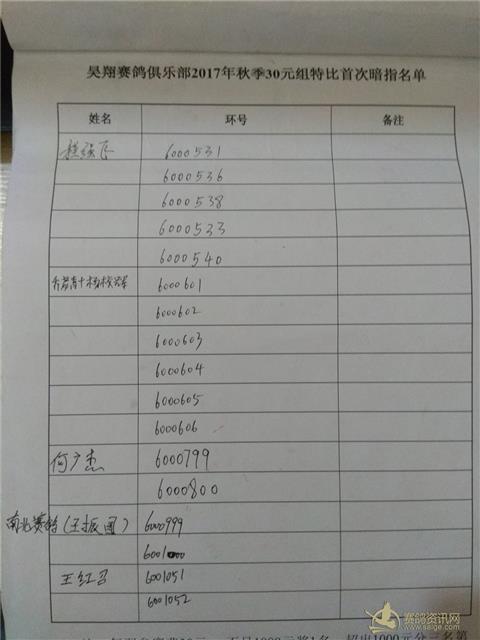 昊翔赛鸽俱乐部2017年秋季30元组特比首次暗指名单
姓名 环号 备注
6000531
6000536
6000538
6000533
6000540
6000601
6000602
6000603
6000604
6000605
6000606
何广杰 6000799
6000800
南北赛鸽(王振国) 6000999
6001000
王红召 6001051
6001052
赛鸽资讯网
www.saige.com